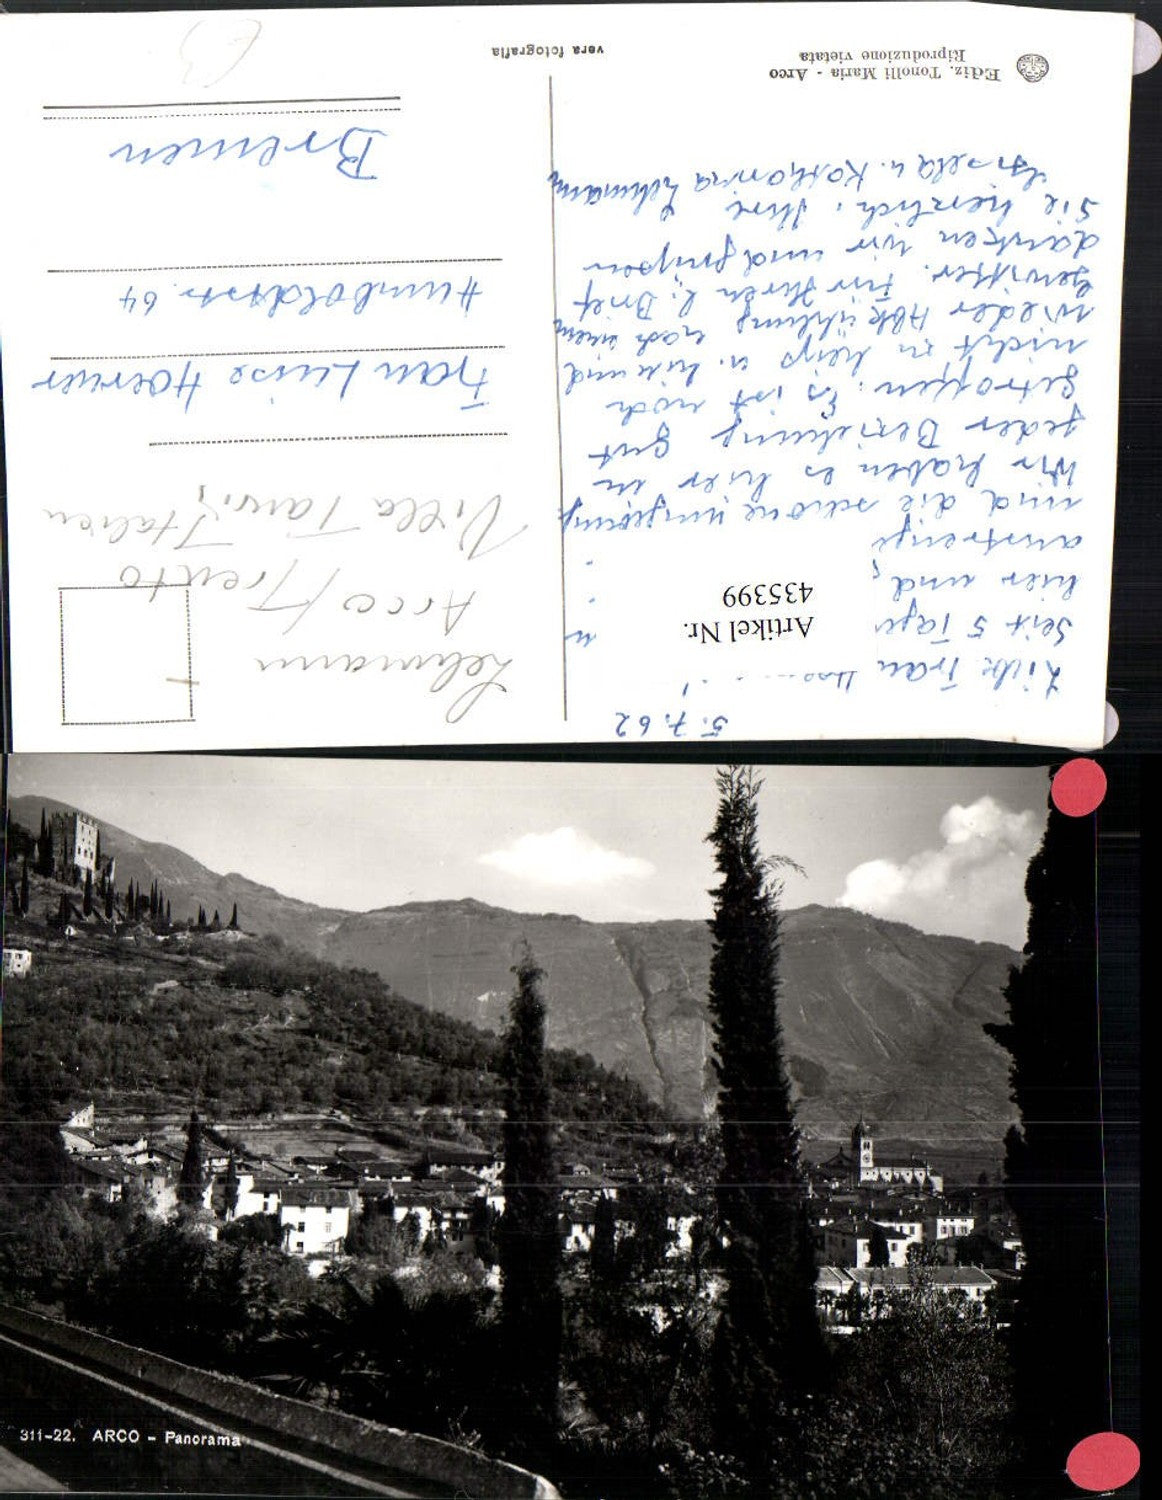 5.7.62
Liebe Frau
Seit 5 Tage
hier und
und die schöne umgebung
Wir haben es hier in
jeder Beziehung gut
getroffen. Es ist noch
nicht zu heiss u. hin und
wieder Abkühlung nach einem
Gewitter. Für Ihren l. Brief
danken wir und grüssen
Sie herzlich. Ihre
Gisela u. Katharina Lehmann
Artikel Nr.
435399
Ediz. Tonolli Maria - Arco
Riproduzione vietata
vera fotografia
Lehmann
Arco/Trento
Villa Italien
Frau Luise Hoerner
Humboldtstr. 64
Bremen
311-22. ARCO - Panorama